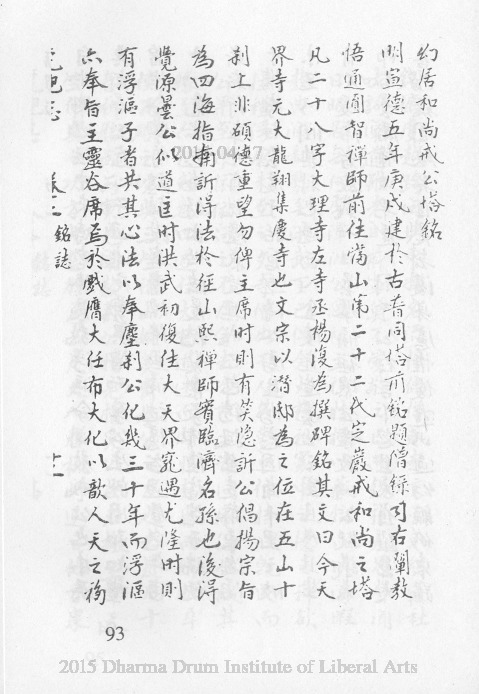 幻居和尚戒公塔銘
明宣德五年庚戌建於古香同塔前銘題僧錄司右闡教
悟通圓智禪師前住當山第二十二代定巖戒和尚之塔
凡二十八字大理寺左寺丞楊復為撰碑銘其文曰今天
界寺元大龍翔集慶寺也文宗以潛邸為之位在五山十
刹上非碩德重望勿俾主席時則有笑隱訢公倡揚宗旨
為四海指南訢得法於徑山熙禪師實臨濟名孫也後得
覺源曇公以道匡時洪武初復住大天界寵遇尤隆時則
有浮漚子者共其心法以奉塵刹公化幾三十年而浮漚
亦奉旨主靈谷席焉於戲膺大任布大化以歆人天之福
卷二 銘誌 十一
93
2015/04/17
2015 Dharma Drum Institute of Liberal Arts